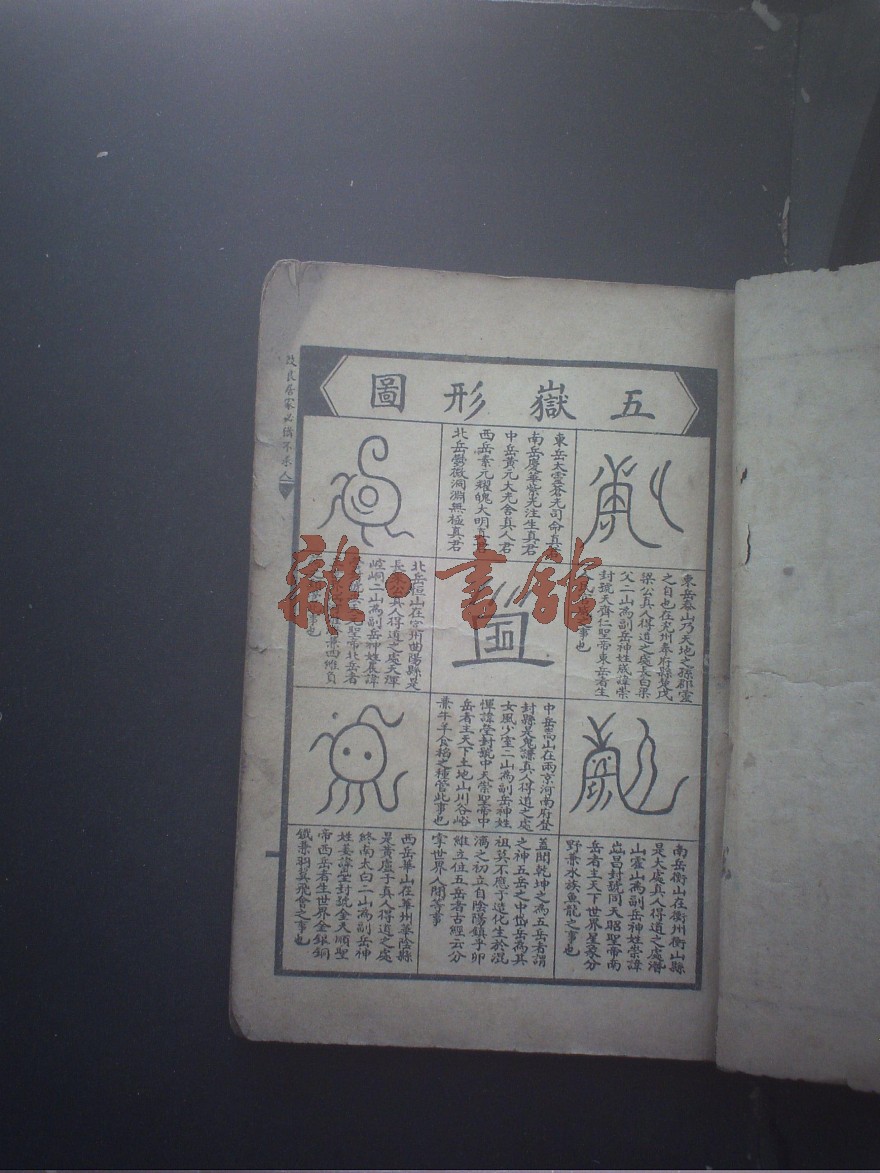 五嶽形圖
東岳太靈蒼光司命真君
南岳慶華紫光注生真君
中岳黃元大光含真人君
西岳素元耀魄大明真君
北岳鬱微洞淵無極真君
東岳泰山乃天地之孫群靈
之自也在兖州奉府縣是茂
梁公真人得道之處長白梁
父二山為副岳神姓歲諱崇
封號天齊仁聖帝東岳者主
事也
北岳恒山在定州曲陽縣是
長桑公真人得道之處天涯
崆峒二山為副岳神姓晨諱
聖帝北岳者
兼四維負
事也
中岳嵩山在兩京河南府登
封縣是鬼谦真人得道之處
女風少室二山為副岳神姓
惲諱㘯封號中天崇聖帝中
岳者主天下土地山川谷峪
兼牛羊食稻之種管此事也
南岳衡山在衡州衡山縣
是太處真人得道之處潛
山霍山為副岳神姓崇諱
岜昌封號同天昭聖帝南
岳者主天下世界星象分
野兼水族魚龍之事也
蓋聞乾坤之為五岳者謂
之神五岳之中岱岳為其
祖莫不應于造化生於混
沌之初立自陰陽鎮乎卯
維立位五岳者古經云分
掌世界人間等事
西岳華山在華州華陰縣
是黃盧子真人得道之處
終南太白二山為副岳神
姓姜諱㘯封號金天順聖
帝西岳者生世界金銀銅
鐵兼羽翼飛會之事也
改良居家必備不求人
雜·書館